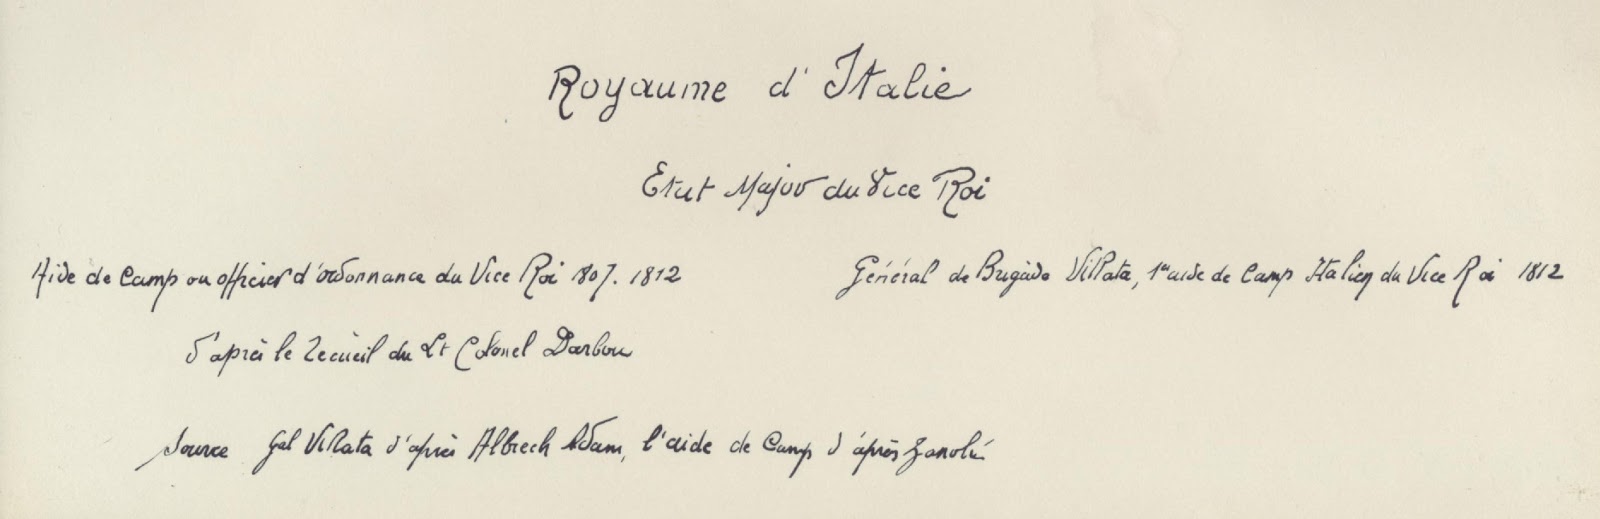 Royaume d'Italie
Etat Major du Vice Roi
Aide de Camp ou officier d'ordonnance du Vice Roi 1807. 1812
Général de Brigade Villata, 1er aide de Camp Italien du Vice Roi 1812
d'après le recueil du Lt Colonel Darbou
Source Gal Villata d'après Albrech Adam, l'aide de Camp d'après Zanoli